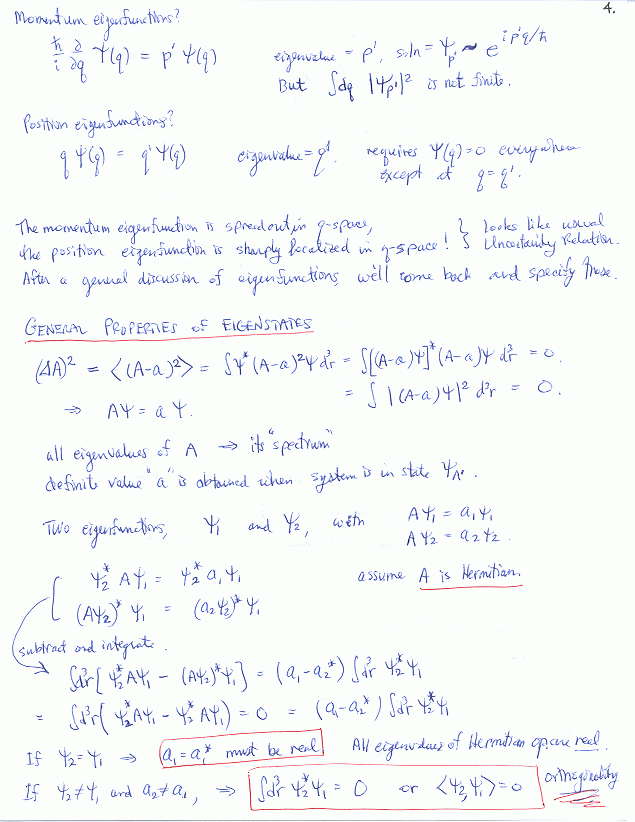 4.
Momentum eigenfunctions?
ħ/i ∂/∂q Ψ(q) = p' Ψ(q)   eigenvalue = p', soln = Ψ_p' ~ e^{ip'q/ħ}
But ∫dq |Ψ_p'|² is not finite.
Position eigenfunctions?
q Ψ(q) = q' Ψ(q)   eigenvalue = q'.   requires Ψ(q)=0 everywhere
except at q=q'.
The momentum eigenfunction is spread out in q-space,
the position eigenfunction is sharply localized in q-space! } Looks like usual
Uncertainty Relation.
After a general discussion of eigenfunctions, we'll come back and specify these.
GENERAL PROPERTIES OF EIGENSTATES
(ΔA)² = <(A-a)²> = ∫Ψ*(A-a)²Ψ d³r = ∫[(A-a)Ψ]*(A-a)Ψ d³r = 0.
= ∫ |(A-a)Ψ|² d³r = 0.
⇒ AΨ = aΨ.
all eigenvalues of A → its "spectrum"
definite value "a" is obtained when system is in state Ψ_A.
Two eigenfunctions, Ψ₁ and Ψ₂, with   AΨ₁ = a₁Ψ₁
AΨ₂ = a₂Ψ₂.
Ψ₂* AΨ₁ = Ψ₂* a₁Ψ₁   assume A is Hermitian.
(AΨ₂)* Ψ₁ = (a₂Ψ₂)* Ψ₁
subtract and integrate.
∫d³r[Ψ₂*AΨ₁ - (AΨ₂)*Ψ₁] = (a₁-a₂*) ∫d³r Ψ₂*Ψ₁
= ∫d³r(Ψ₂*AΨ₁ - Ψ₂*AΨ₁) = 0 = (a₁-a₂*) ∫d³r Ψ₂*Ψ₁
If Ψ₂=Ψ₁ ⇒ a₁=a₁* must be real   All eigenvalues of Hermitian op are real.
If Ψ₂≠Ψ₁ and a₂≠a₁, ⇒ ∫d³r Ψ₂*Ψ₁ = 0 or <Ψ₂,Ψ₁>=0   orthogonality